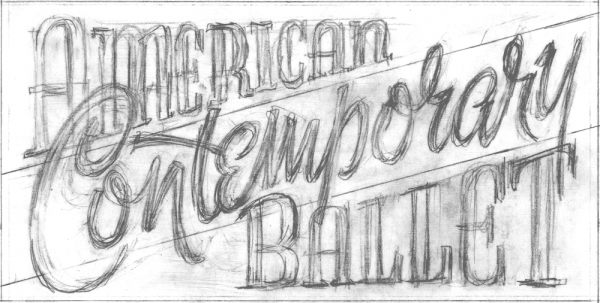 AMERICAN
Contemporary
BALLET